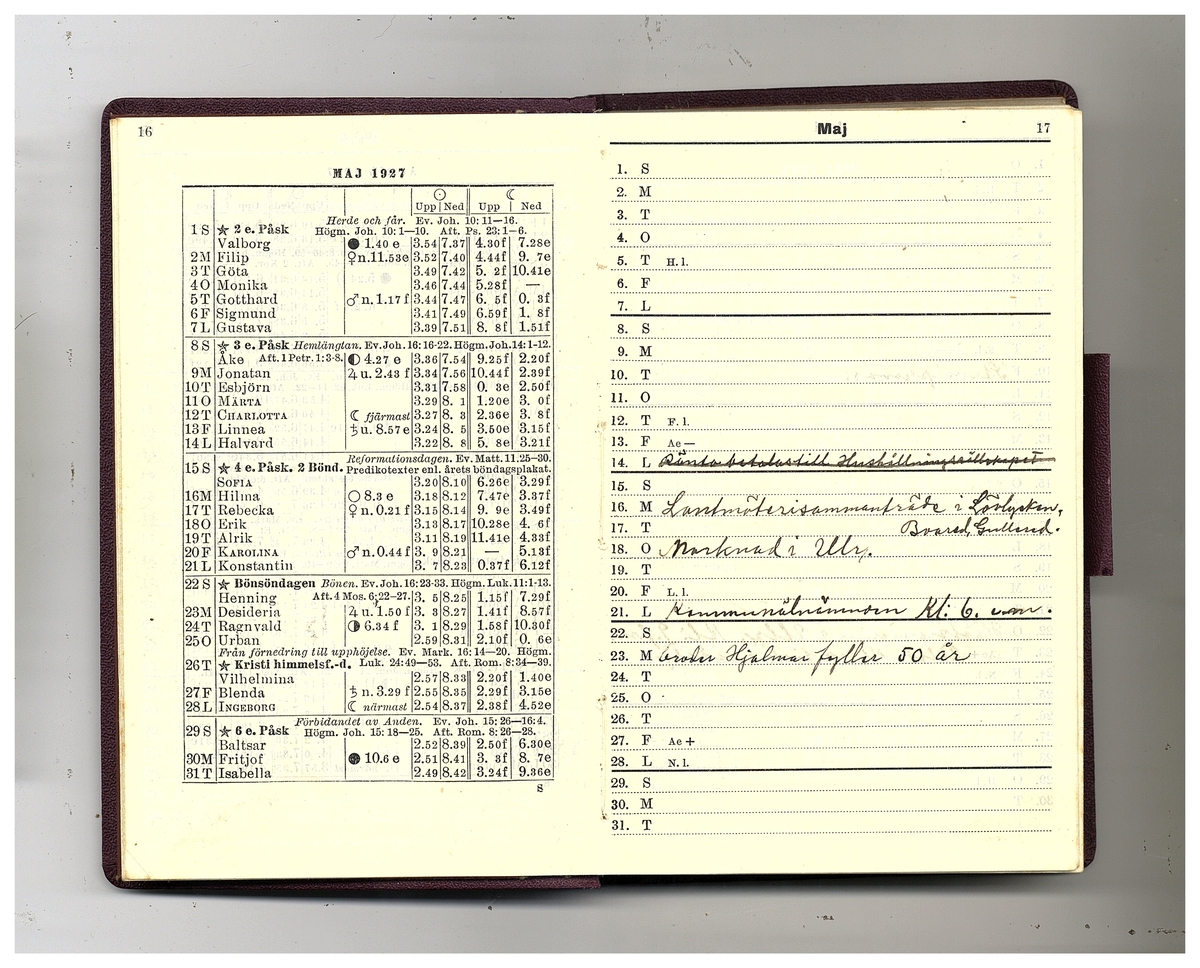 16
MAJ 1927
☉ ☾
Upp Ned Upp Ned
Herde och får. Ev. Joh. 10: 11—16.
1 S ★ 2 e. Påsk Högm. Joh. 10: 1—10. Aft. Ps. 23: 1—6.
Valborg ● 1.40 e 3.54 7.37 4.30f 7.28e
2 M Filip ♀n.11.53e 3.52 7.40 4.44f 9. 7e
3 T Göta 3.49 7.42 5. 2f 10.41e
4 O Monika 3.46 7.44 5.28f —
5 T Gotthard ♂ n. 1.17 f 3.44 7.47 6. 5f 0. 3f
6 F Sigmund 3.41 7.49 6.59f 1. 8f
7 L Gustava 3.39 7.51 8. 8f 1.51f
8 S ★ 3 e. Påsk Hemlängtan. Ev. Joh. 16: 16-22. Högm. Joh. 14: 1-12.
Åke Aft. 1 Petr. 1: 3-8. ◐ 4.27 e 3.36 7.54 9.25f 2.20f
9 M Jonatan ♃ u. 2.43 f 3.34 7.56 10.44f 2.39f
10 T Esbjörn 3.31 7.58 0. 3e 2.50f
11 O MÄRTA 3.29 8. 1 1.20e 3. 0f
12 T CHARLOTTA ☾ fjärmast 3.27 8. 3 2.36e 3. 8f
13 F Linnea ♄ u. 8.57 e 3.24 8. 5 3.50e 3.15f
14 L Halvard 3.22 8. 8 5. 8e 3.21f
Reformationsdagen. Ev. Matt. 11. 25-30.
15 S ★ 4 e. Påsk. 2 Bönd. Predikotexter enl. årets böndagsplakat.
SOFIA 3.20 8.10 6.26e 3.29f
16 M Hilma ○ 8.3 e 3.18 8.12 7.47e 3.37f
17 T Rebecka ♀ n. 0.21 f 3.15 8.14 9. 9e 3.49f
18 O Erik 3.13 8.17 10.28e 4. 6f
19 T Alrik 3.11 8.19 11.41e 4.33f
20 F KAROLINA ♂ n. 0.44 f 3. 9 8.21 — 5.13f
21 L Konstantin 3. 7 8.23 0.37f 6.12f
22 S ★ Bönsöndagen Bönen. Ev. Joh. 16: 23-33. Högm. Luk. 11: 1-13.
Henning Aft. 4 Mos. 6: 22-27. 3. 5 8.25 1.15f 7.29f
23 M Desideria ♃ u. 1.50 f 3. 3 8.27 1.41f 8.57f
24 T Ragnvald ◑ 6.34 f 3. 1 8.29 1.58f 10.30f
25 O Urban 2.59 8.31 2.10f 0. 6e
Från förnedring till upphöjelse. Ev. Mark. 16: 14—20. Högm.
26 T ★ Kristi himmelsf.-d. Luk. 24: 49—53. Aft. Rom. 8: 34—39.
Vilhelmina 2.57 8.33 2.20f 1.40e
27 F Blenda ♄ n. 3.29 f 2.55 8.35 2.29f 3.15e
28 L INGEBORG ☾ närmast 2.54 8.37 2.38f 4.52e
Förbidandet av Anden. Ev. Joh. 15: 26—16: 4.
29 S ★ 6 e. Påsk Högm. Joh. 15: 18—25. Aft. Rom. 8: 26—28.
Baltsar 2.52 8.39 2.50f 6.30e
30 M Fritjof ● 10.6 e 2.51 8.41 3. 3f 8. 7e
31 T Isabella 2.49 8.42 3.24f 9.36e
S
Maj 17
1. S
2. M
3. T
4. O
5. T H. l.
6. F
7. L
8. S
9. M
10. T
11. O
12. T F. l.
13. F Ae —
14. L Ränta betalas till Hushållningssällskapet
15. S
16. M Lantmäterisammanträde i Lövlyckan,
17. T Boared, Gullered.
18. O Marknad i Ulr.
19. T
20. F L. l.
21. L Kommunalnämnden Kl. 6. e.m.
22. S
23. M broder Hjalmar fyller 50 år
24. T
25. O
26. T
27. F Ae +
28. L N. l.
29. S
30. M
31. T